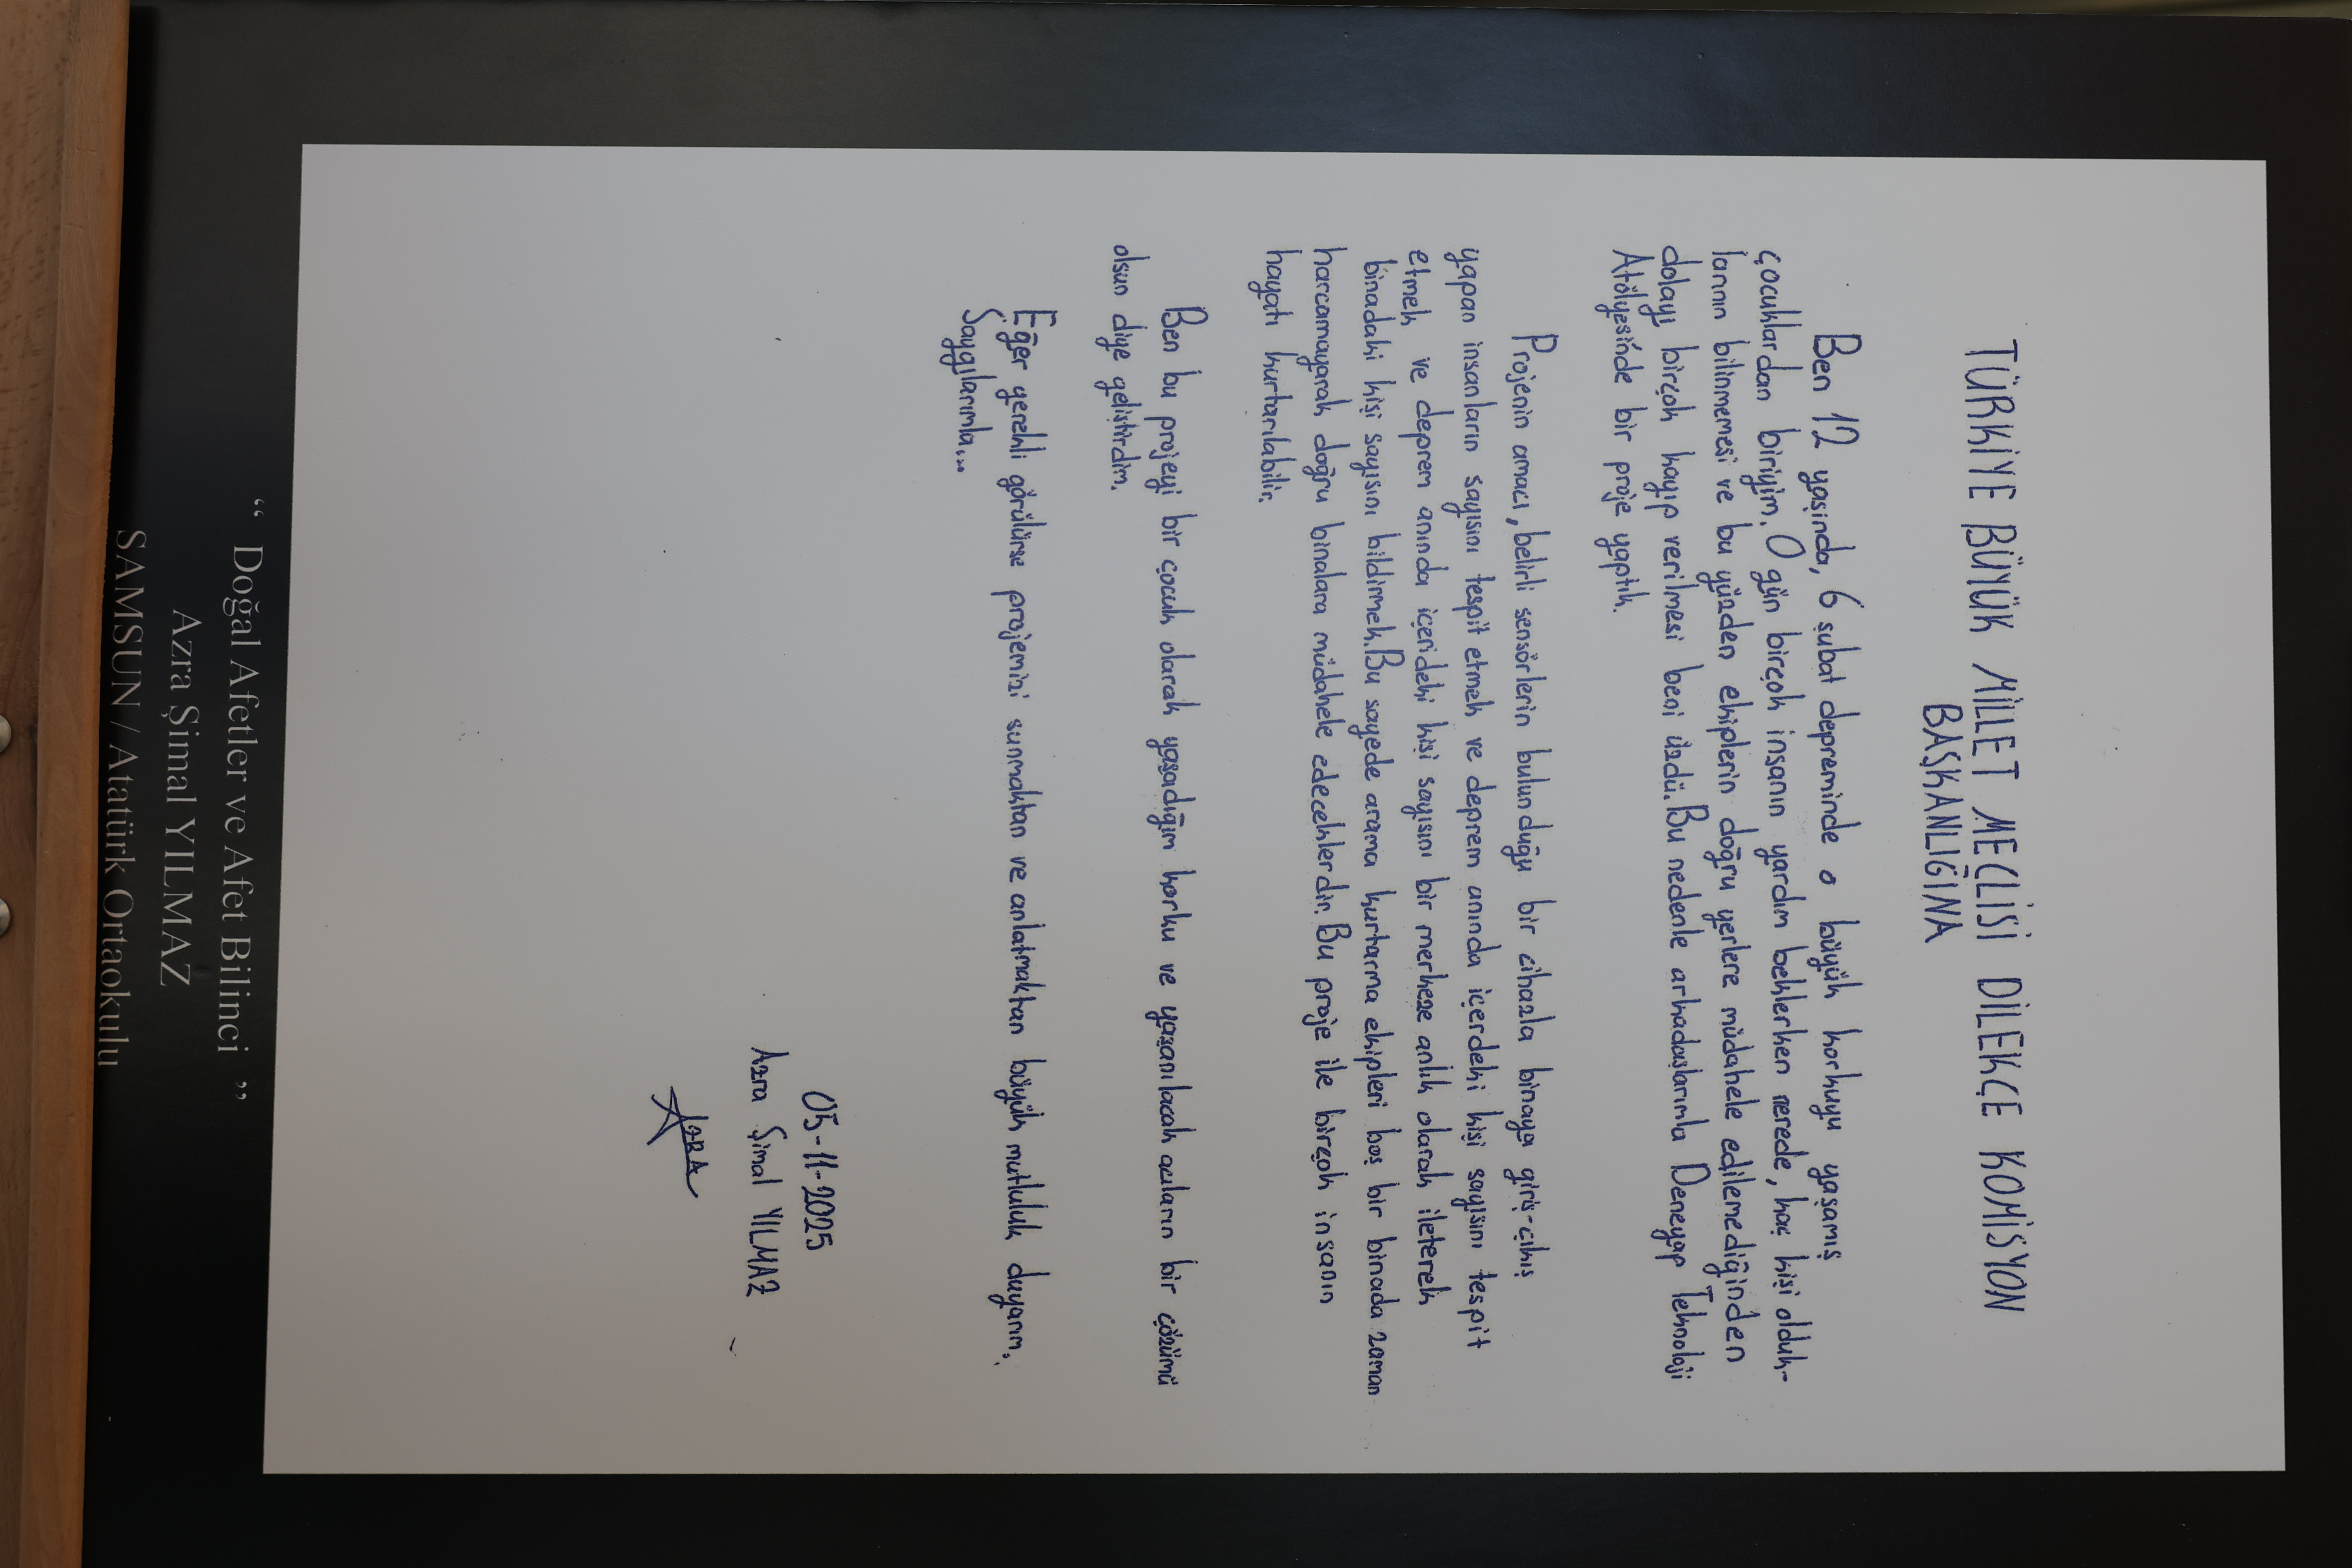 TÜRKİYE BÜYÜK MİLLET MECLİSİ DİLEKÇE KOMİSYON
BAŞKANLIĞINA
Ben 12 yaşında, 6 şubat depreminde o büyük korkuyu yaşamış
çocuklardan biriyim. O gün birçok insanın yardım beklerken nerede, kaç kişi olduk-
larının bilinmemesi ve bu yüzden ekiplerin doğru yerlere müdahele edilemediğinden
dolayı birçok kayıp verilmesi beni üzdü. Bu nedenle arkadaşlarımla Deneyap Teknoloji
Atölyesinde bir proje yaptık.
Projenin amacı, belirli sensörlerin bulunduğu bir cihazla binaya giriş-çıkış
yapan insanların sayısını tespit etmek ve deprem anında içerdeki kişi sayısını tespit
etmek ve deprem anında içerideki kişi sayısını bir merkeze anlık olarak ileterek
binadaki kişi sayısını bildirmek. Bu sayede arama kurtarma ekipleri boş bir binada zaman
harcamayarak doğru binalara müdahele edeceklerdir. Bu proje ile birçok insanın
hayatı kurtarılabilir.
Ben bu projeyi bir çocuk olarak yaşadığım korku ve yaşanılacak acıların bir çözümü
olsun diye geliştirdim.
Eğer gerekli görülürse projemizi sunmaktan ve anlatmaktan büyük mutluluk duyarım.
Saygılarımla...
05-11-2025
Azra Şimal YILMAZ
AZRA
“ Doğal Afetler ve Afet Bilinci ”
Azra Şimal YILMAZ
SAMSUN / Atatürk Ortaokulu